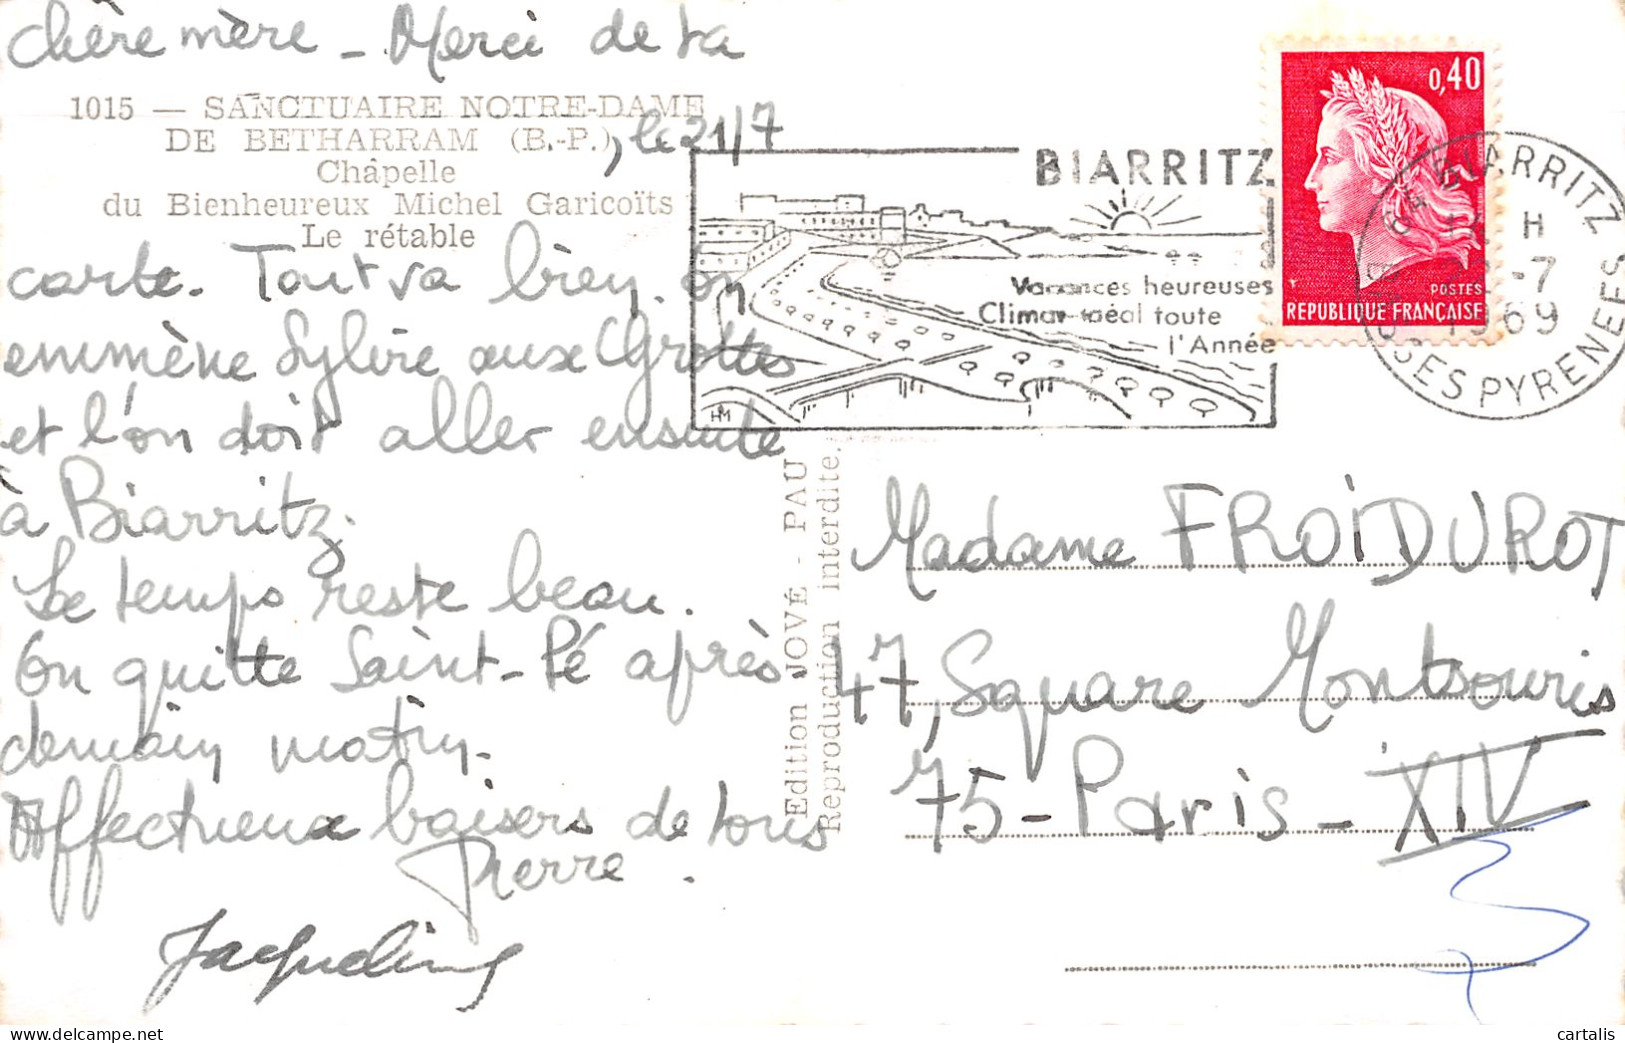 chère mère - Merci de ta
1015 — SANCTUAIRE NOTRE-DAME
DE BETHARRAM (B.-P.), le 21/7
Châpelle
du Bienheureux Michel Garicoïts
Le rétable
carte. Tout va bien. on
emmène Sylvie aux Grottes
et l'on doit aller ensuite
à Biarritz.
Le temps reste beau.
On quitte Saint-Pé après-
demain matin.
Affectueux baisers de tous
Pierre.
Jacqueline
Edition JOVÉ - PAU
Reproduction interdite.
BIARRITZ
Vacances heureuses
Climat idéal toute
l'Année
HM
0,40
POSTES
REPUBLIQUE FRANÇAISE
BIARRITZ
H
-7
1969
SES PYRENEES
Madame FROIDUROT
47, Square Montsouris
75 - Paris - XIV
cartalis